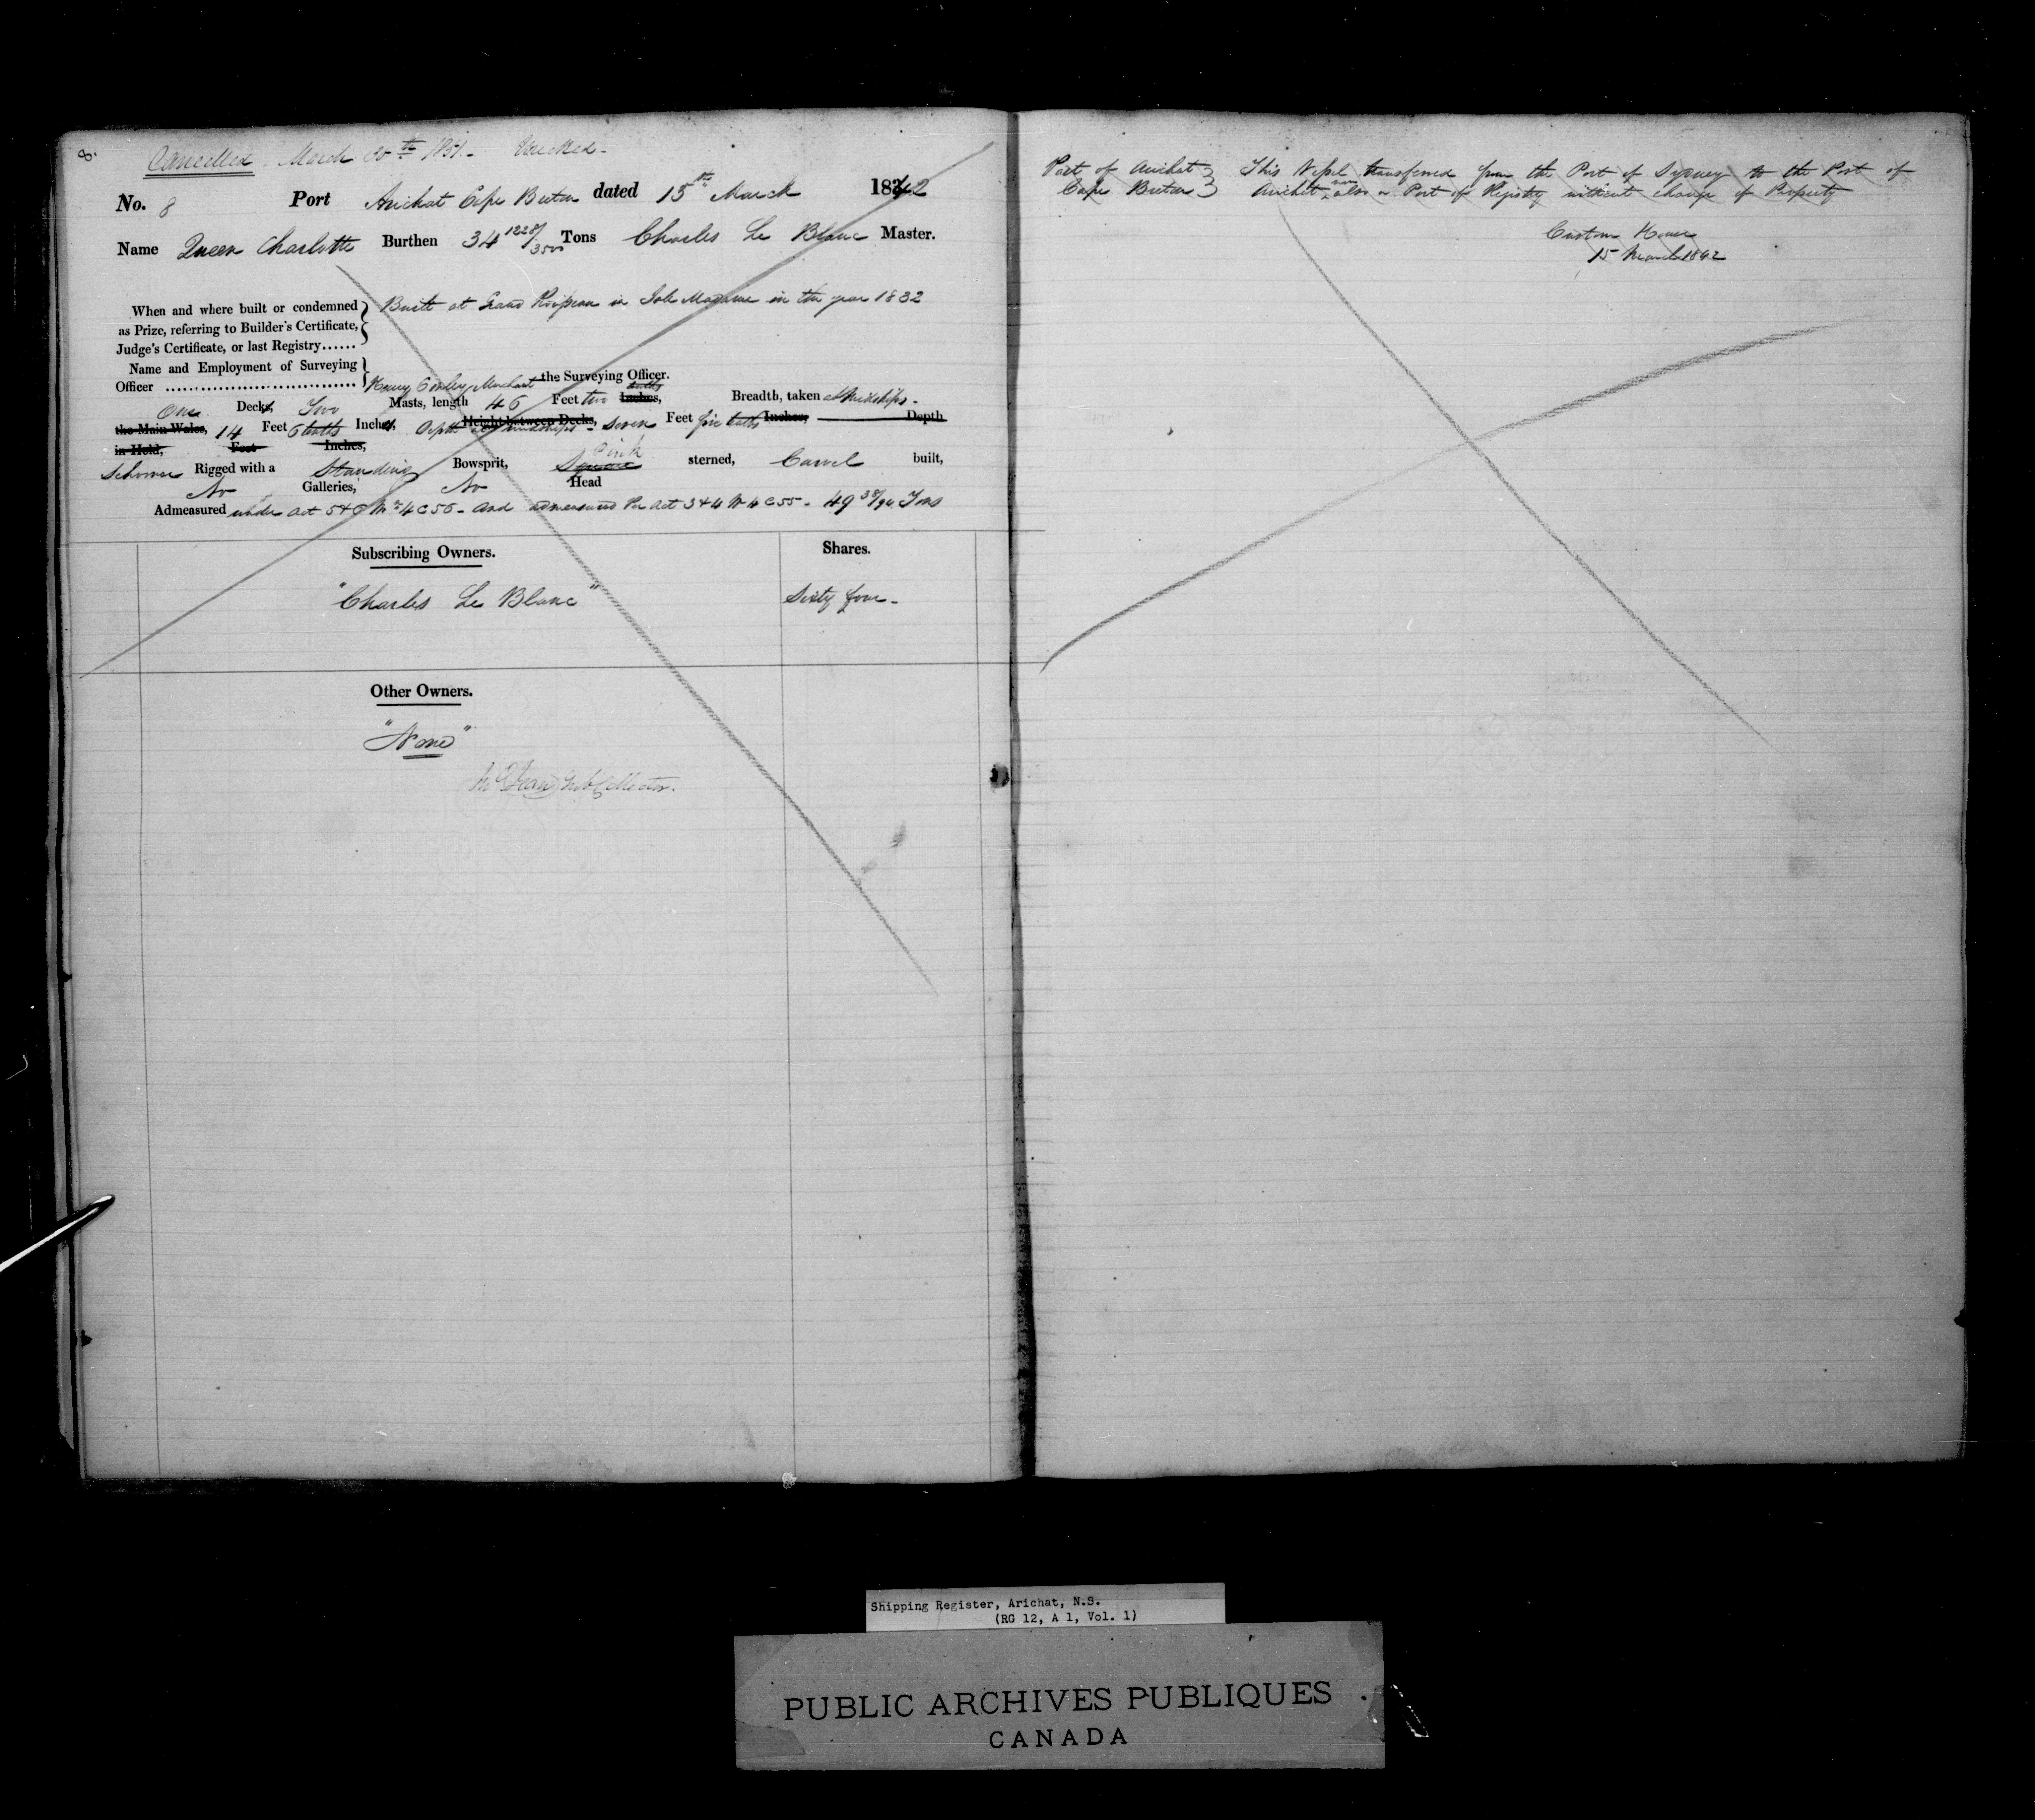 8.
Cancelled March 20th 1851. Wrecked.
No. 8 Port Arichat Cape Breton dated 15th March 1842
Name Queen Charlotte Burthen 34 1228/3500 Tons Charles Le Blanc Master.
When and where built or condemned as Prize, referring to Builder's Certificate, Judge's Certificate, or last Registry......
Built at Grand in Isle Madame in the year 1832
Name and Employment of Surveying
Officer ................................ Henry Merchant the Surveying Officer.
One Decks, Two Masts, length 46 Feet two tenths Inches, Breadth, taken at Midships.
the Main Wales, 14 Feet 6 tenths Inches, Depth at midships Height between Decks, seven Feet five tenths Inches, Depth
in Hold, Feet Inches,
Schooner Rigged with a Standing Bowsprit, Square Pink sterned, Carvel built,
No Galleries, No Head
Admeasured under Act 5 & 6 Wm 4 C 56 - and admeasured Per Act 3 & 4 W 4 C 55 - 49 38/94 Tons
Subscribing Owners. Shares.
"Charles Le Blanc" Sixty four -
Other Owners.
"None"
Sub Collector.
Port of Arichat
Cape Breton
This Vessel transferred from the Port of Sydney to the Port of
Arichat now also a Port of Registry without change of Property
Custom House
15 March 1842
Shipping Register, Arichat, N.S.
(RG 12, A 1, Vol. 1)
PUBLIC ARCHIVES PUBLIQUES
CANADA